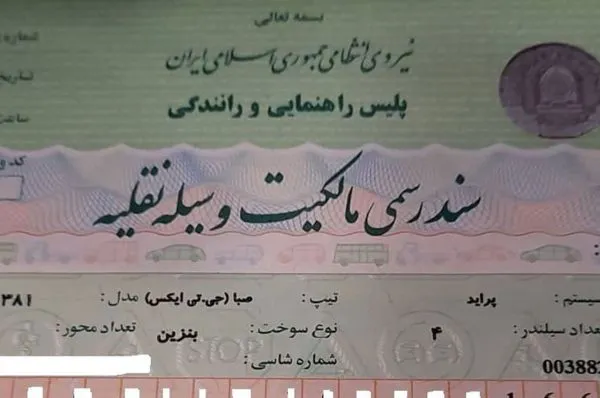 بسمه تعالی
نیروی انتظامی جمهوری اسلامی ایران
شماره
پلیس راهنمایی و رانندگی
تاریخ
ساعت
کد و
سند رسمی مالکیت وسیله نقلیه
سیستم : پراید تیپ : صبا (جی.تی ایکس) مدل : ۳۸۱
تعداد سیلندر : ۴ نوع سوخت : بنزین تعداد محور :
003882 شماره شاسی :
STOP